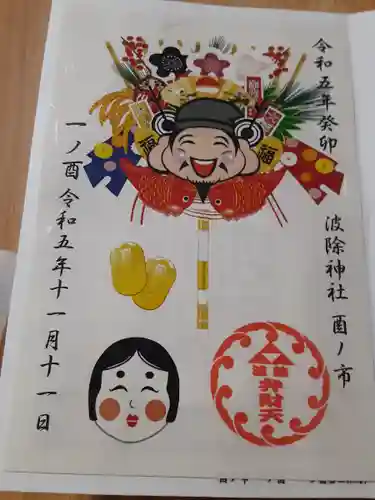 令和五年癸卯
波除神社 酉ノ市
福
福
一ノ酉 令和五年十一月十一日
弁財天